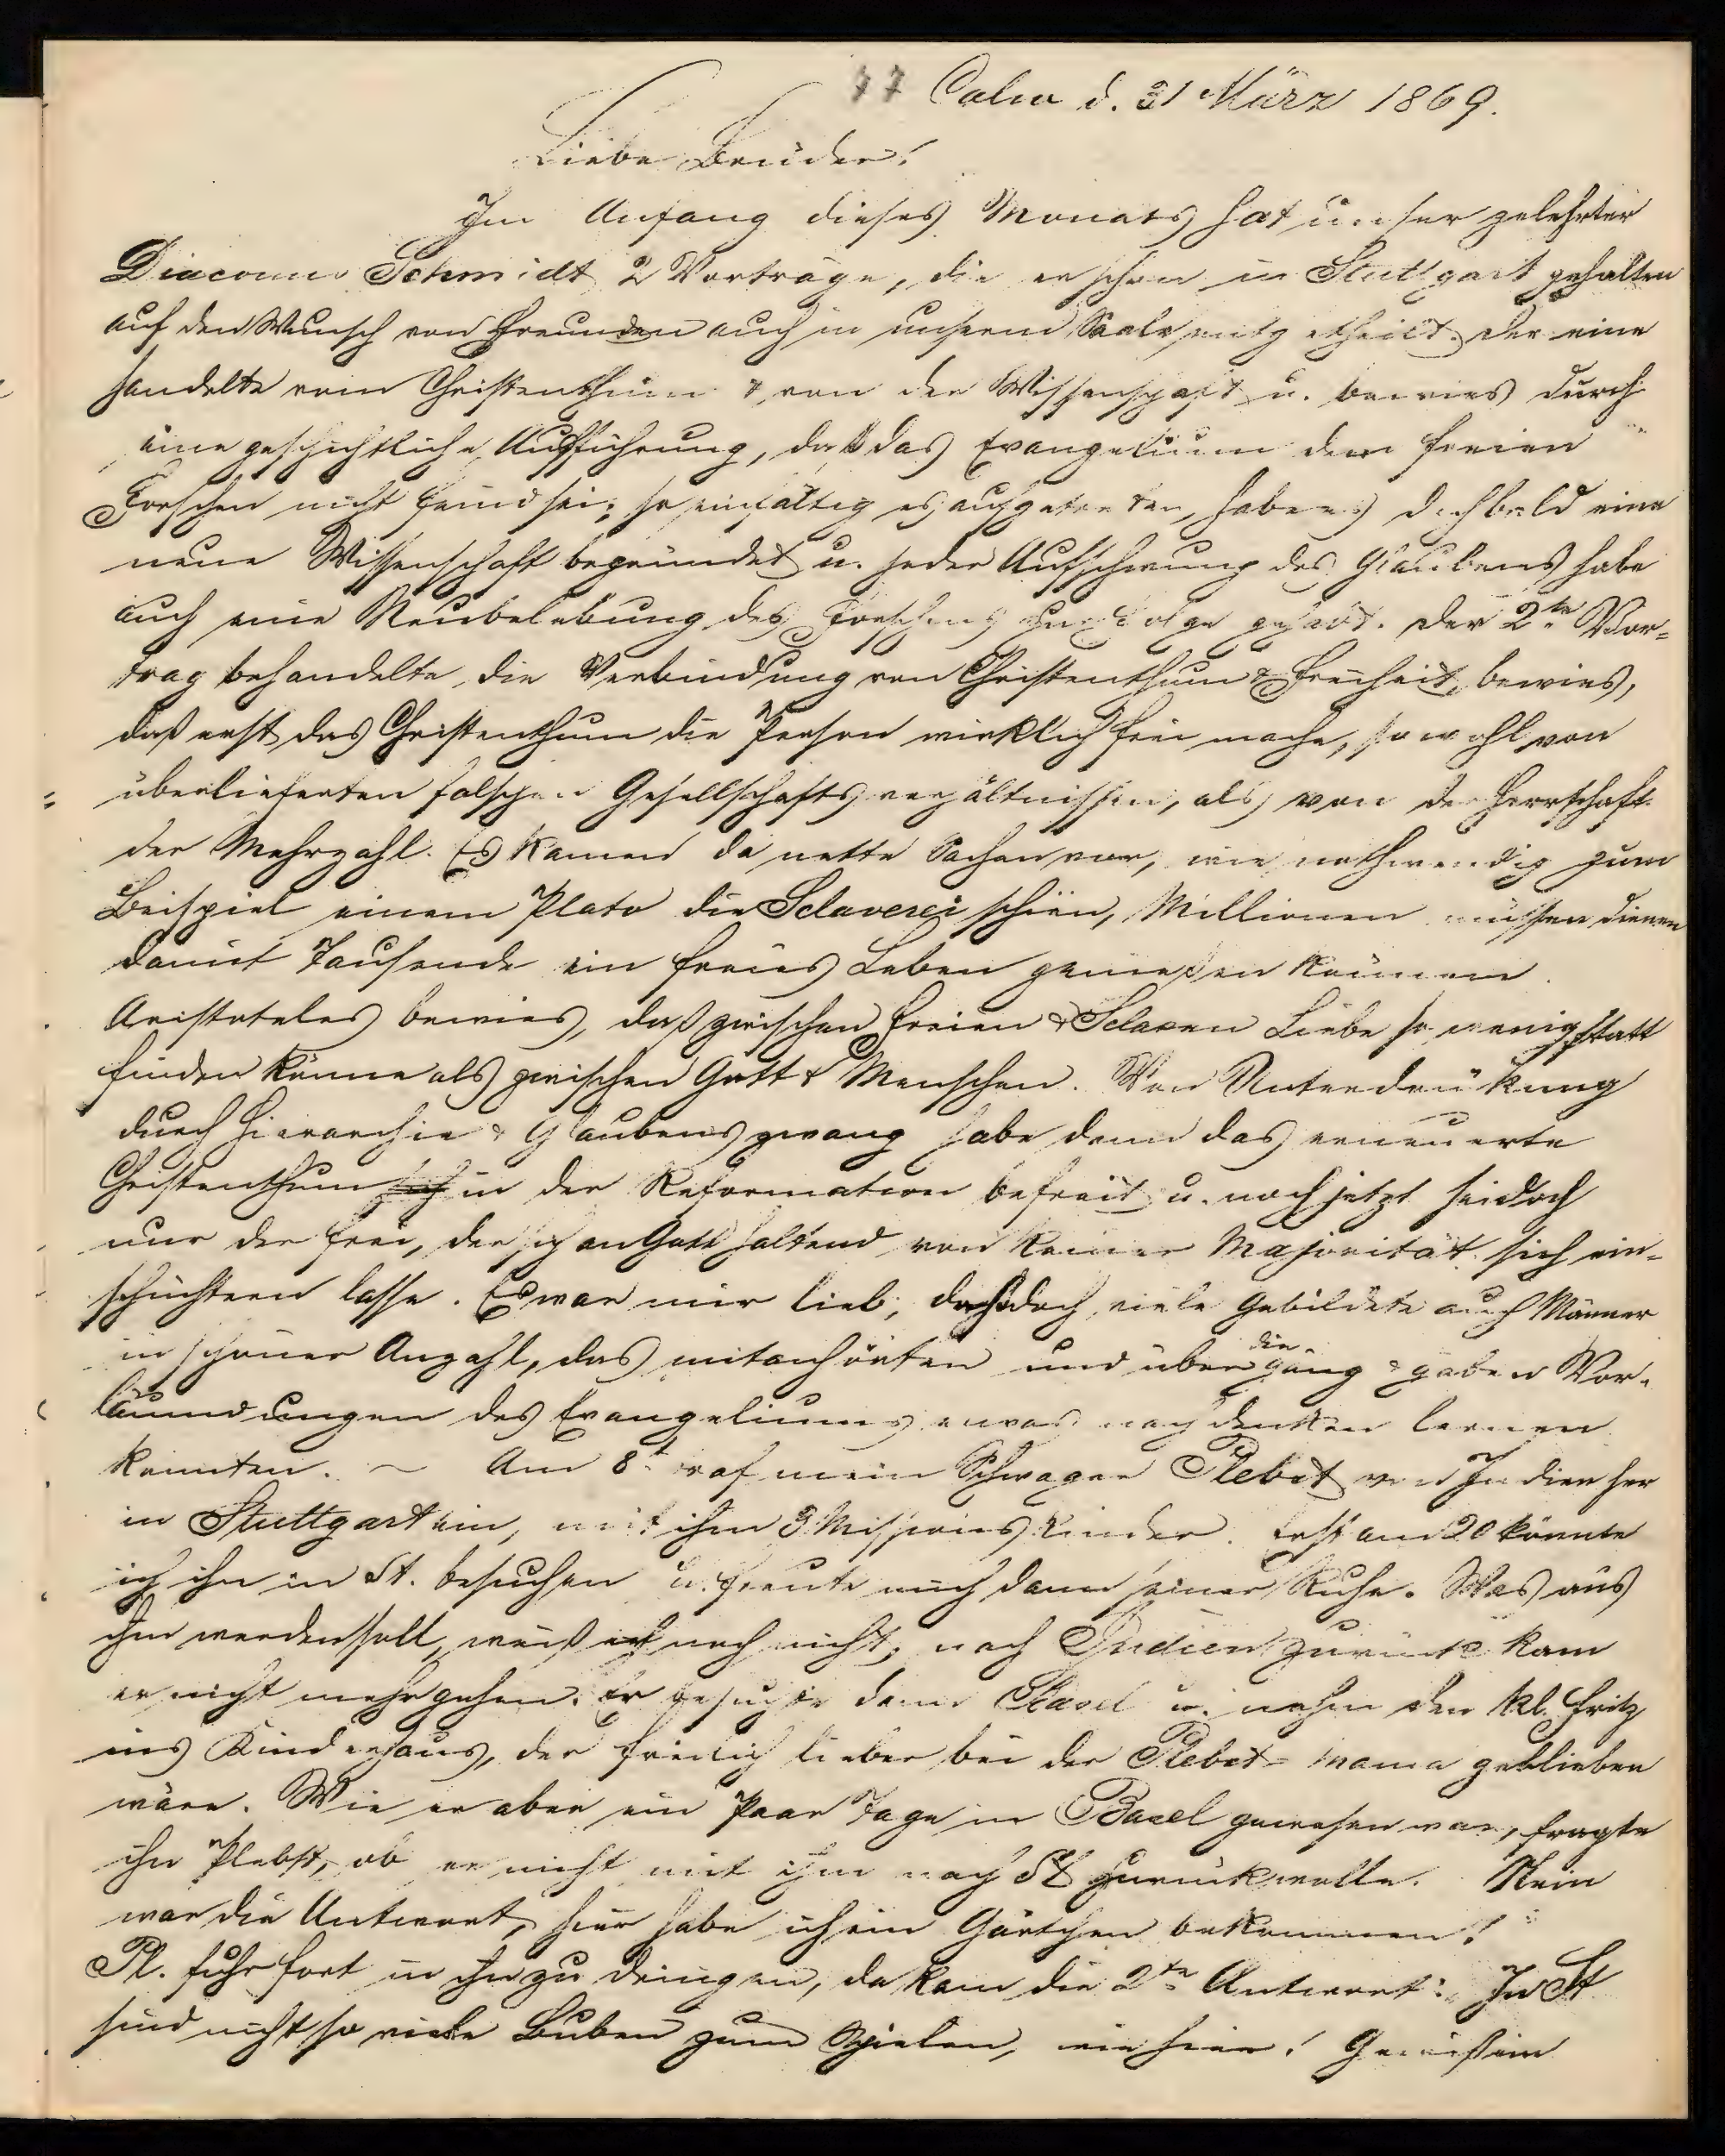 77 Calw d. 31 März 1869.
Liebe Brüder!
Im Anfang dieses Monats hat unser gelehrter
Diaconus Schmidt 2 Vorträge, die er schon in Stuttgart gehalten
auf den Wunsch von Freunden auch in unserm Saale mitgetheilt. Der eine
handelte vom Christenthum & von der Wissenschaft u. bewies durch
eine geschichtliche Ausführung, daß das Evangelium dem freien
Forschen nicht feind sei; so einfältig es aufgetreten, habe es doch bald eine
neue Wissenschaft begründet u. jeder Aufschwung des Glaubens habe
auch eine Neubelebung des Forschens zur Folge gehabt. Der 2te Vor-
trag behandelte die Verbindung von Christenthum & Freiheit, bewies,
daß erst das Christenthum die Person wirklich frei mache, sowohl von
überlieferten falschen Gesellschaftsverhältnissen, als von der Herrschaft
der Mehrzahl. Es kamen da nette Sachen vor, wie nothwendig zum
Beispiel einem Plato die Sclaverei schien, Millionen müssen dienen
damit Tausende ein freies Leben genießen können.
Aristoteles bewies, daß zwischen Freien & Sclaven Liebe so wenig statt
finden könne als zwischen Gott & Menschen. Von Unterdrükung
durch Hierarchie & Glaubenszwang habe dann das erneuerte
Christenthum in der Reformation befreit u. noch jetzt sei doch
nur der frei, der sich an Gott haltend von keiner Majorität sich ein-
schüchtern lasse. Es war mir lieb, daß doch viele Gebildete auch Männer
in schöner Anzahl, das mitanhörten und über die gäng & gaben Ver-
läumdungen des Evangeliums etwas nachdenken lernen
konnten. – Am 8t traf mein Schwager Plebst von Indien her
in Stuttgart ein, mit ihm 3 Missionskinder. Erst am 20 konnte
ich ihn in St. besuchen u. freute mich dann seiner Ruhe. Was aus
ihm werden soll, weiß ich noch nicht, nach Indien zurück kann
er nicht mehr gehen. Er besuchte dann Basel u. nahm den kl. Fritz
ins Kinderhaus, der freilich lieber bei der Plebst-mama geblieben
wäre. Wie er aber ein Paar Tage in Basel gewesen war, fragte
ihn Plebst, ob er nicht mit ihm nach St zurückwolle. Nein
war die Antwort, hier habe ich ein Gärtchen bekommen!
Pl. fuhr fort in ihn zu dringen, da kam die 2te Antwort: In St
sind nicht so viele Buben zum Spielen, wie hier! Gewiß ein